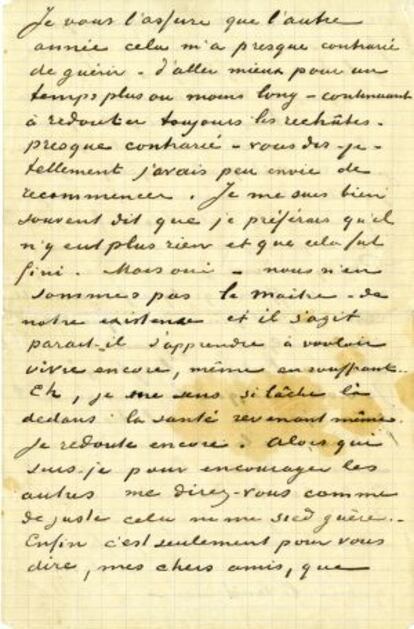 Je vous l'assure que l'autre
année cela m'a presque contrarié
de guérir – d'aller mieux pour un
temps plus ou moins long – continuant
à redouter toujours les rechûtes –
presque contrarié – vous dis-je –
tellement j'avais peu envie de
recommencer. Je me suis bien
souvent dit que je préférais qu'il
n'y eut plus rien et que cela fut
fini. Mais oui – nous n'en
sommes pas le maître – de
notre existence et il s'agit
parait-il d'apprendre à vouloir
vivre encore, même en souffrant..
Eh, je me sens si lâche là
dedans; la santé revenant même
je redoute encore. Alors qui
suis-je pour encourager les
autres me direz-vous comme
de juste cela ne me sied guère..
Enfin c'est seulement pour vous
dire, mes chers amis, que